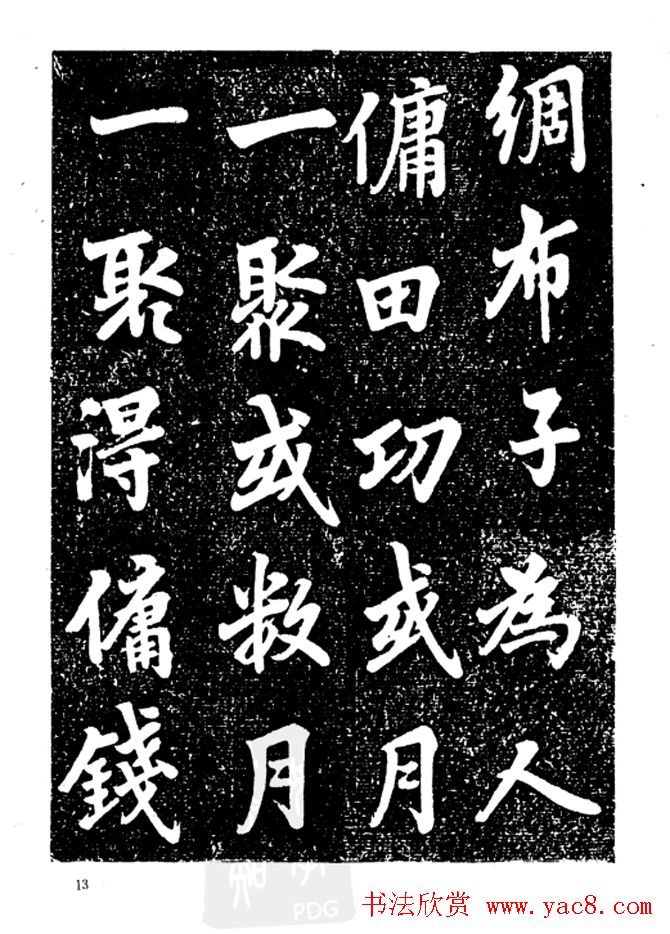 綢布子為人
傭田功或月
一聚或数月
一聚得傭錢
13
PDG
书法欣赏 www.yac8.com